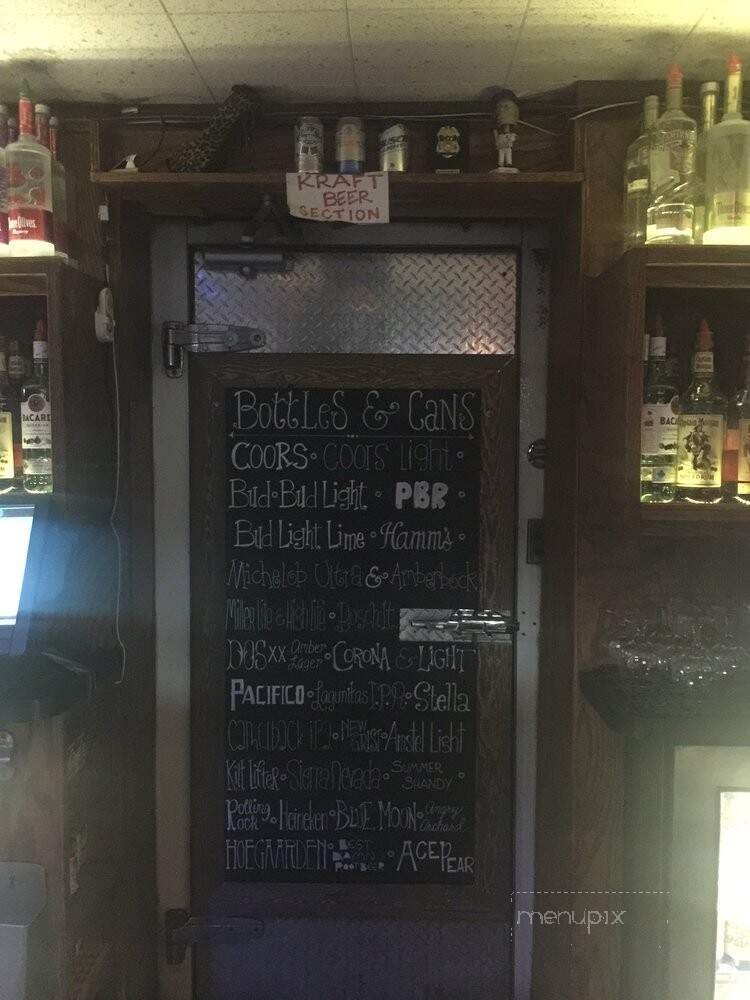 KRAFT
BEER
SECTION
BOTTLES & CANS
COORS • COORS LIGHT •
Bud • Bud Light • PBR •
Bud Light Lime • Hamm's •
Michelob Ultra & Amberbock
Miller Lite & High Life •
DOS XX Amber Lager • CORONA & LIGHT
PACIFICO • Lagunitas I.P.A • Stella
• Amstel Light
Kilt Lifter • Sierra Nevada • SUMMER SHANDY •
Rolling Rock • Heineken • BLUE MOON • Angry Orchard
HOEGAARDEN • BEST DAMN ROOT BEER • ACE PEAR
BACARDI
Captain Morgan
menupix